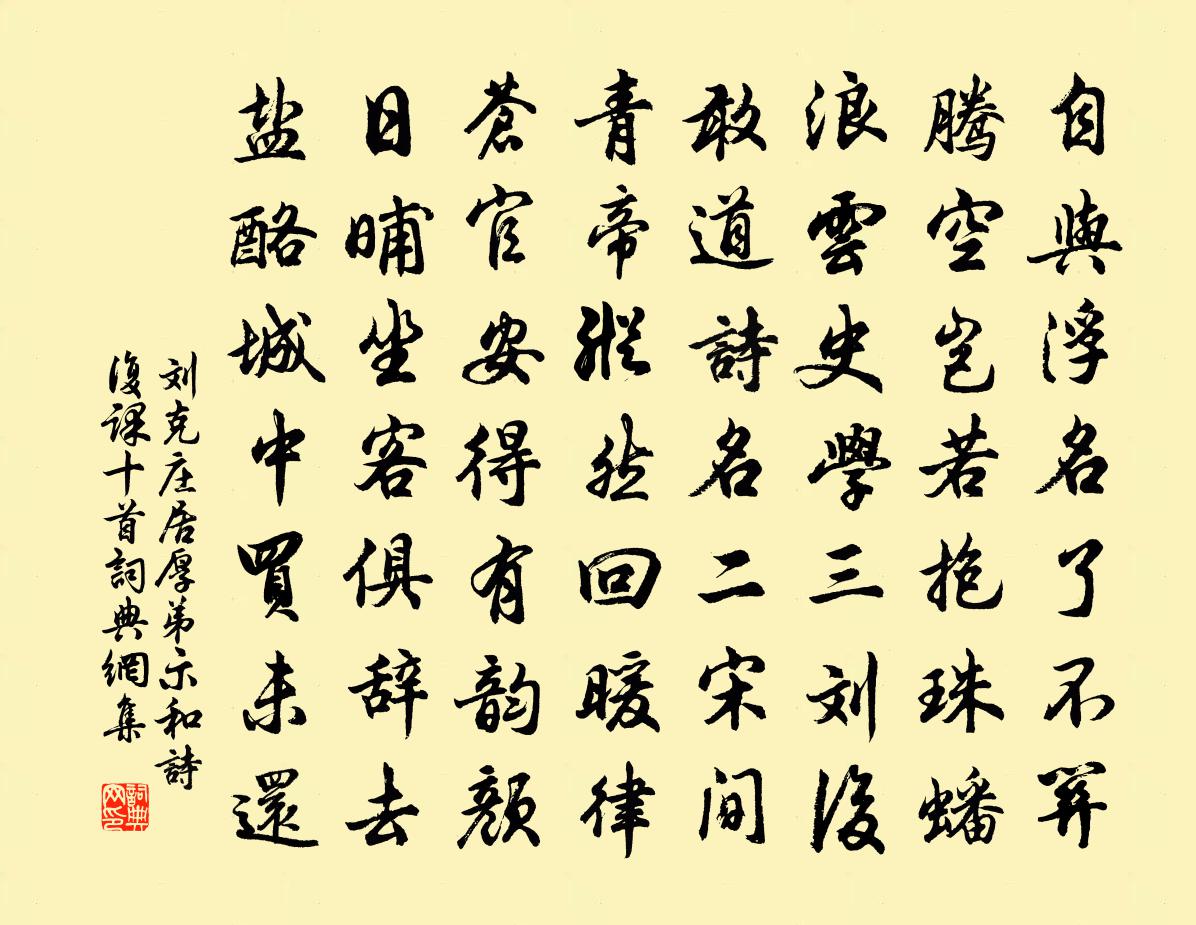 自與浮名了不關
騰空豈若抱珠蟠
浪雲史學三刘後
敢道詩名二宋间
青帝縱然回暖律
蒼官安得有韵顏
日晡坐客俱辞去
盐酪城中買未還
刘克庄居厚弟示和詩
復課十首詞典網集
詞典
网印